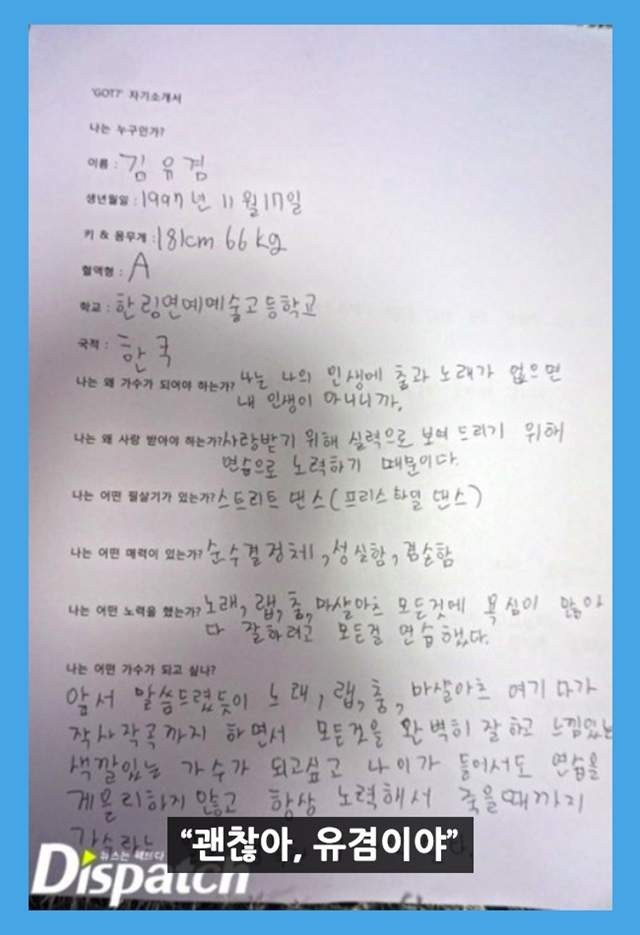 'GOT7' 자기소개서
나는 누구인가?
이름 : 김유겸
생년월일 : 1997년 11월 17일
키 & 몸무게 : 181cm 66kg
혈액형 : A
학교 : 한림연예예술고등학교
국적 : 한국
나는 왜 가수가 되어야 하는가? 나는 나의 인생에 춤과 노래가 없으면
내 인생이 아니니까,
나는 왜 사랑 받아야 하는가? 사랑받기 위해 실력으로 보여 드리기 위해
연습으로 노력하기 때문이다.
나는 어떤 필살기가 있는가? 스트리트 댄스(프리스타일 댄스)
나는 어떤 매력이 있는가? 순수결정체, 성실함, 겸손함
나는 어떤 노력을 했는가? 노래, 랩, 춤, 마샬아츠 모든것에 욕심이 많아
다 잘하려고 모든걸 연습했다.
나는 어떤 가수가 되고 싶나?
앞서 말씀드렸듯이 노래, 랩, 춤, 마샬아츠 여기다가
작사작곡까지 하면서 모든것을 완벽히 잘하고 느낌있는
색깔있는 가수가 되고싶고 나이가 들어서도 연습을
게을리하지않고 항상 노력해서 죽을때까지
가수라는
“괜찮아, 유겸이야”
뉴스는 팩트다
Dispatch